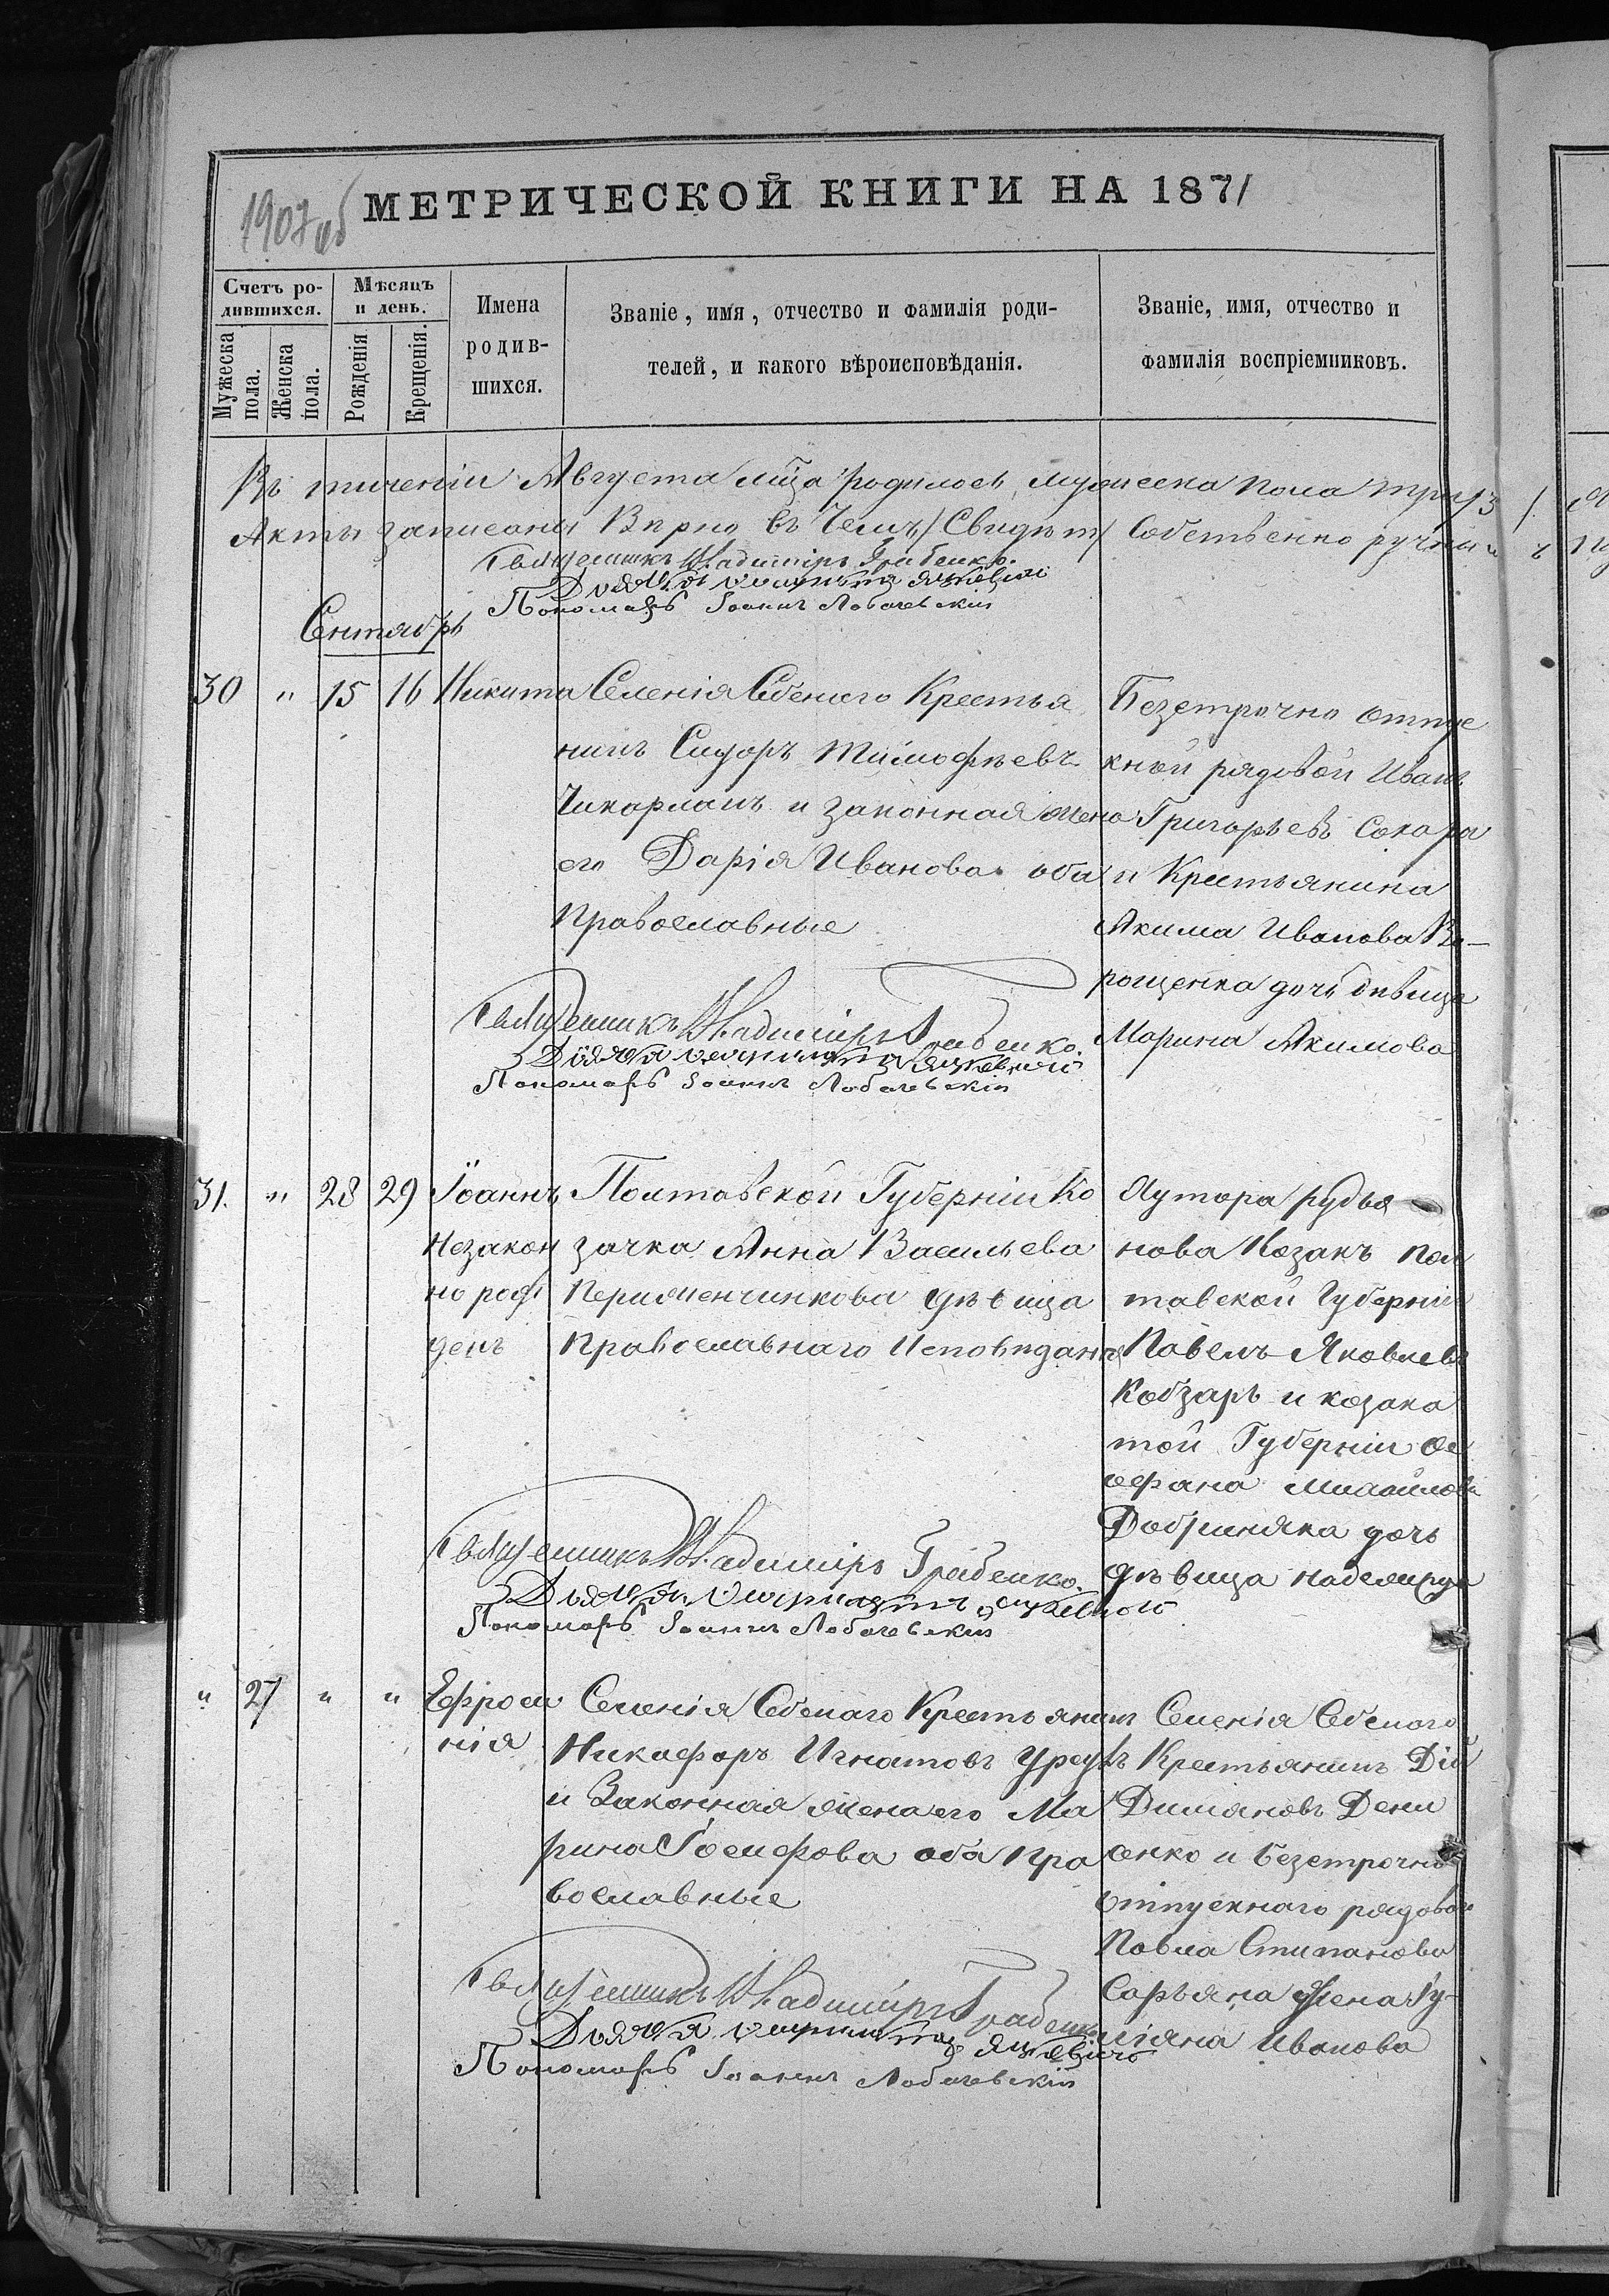 1907 об
МЕТРИЧЕСКОЙ КНИГИ НА 1871
Счетъ ро-
дившихся.
Мужеска
пола.
Женска
пола.
Мѣсяцъ
и день.
Рожденія
Крещенія.
Имена
родив-
шихся.
Званіе, имя, отчество и фамилія роди-
телей, и какого вѣроисповѣданія.
Званіе, имя, отчество и
фамилія воспріемниковъ.
Въ теченіи Августа мца родилось мужеска пола три /3/.
Акты записаны Вѣрно въ Чемъ Свидѣт Собственно ручн
Священникъ Владиміръ Грабенко.
Дьячокъ
Пономарь Іоаннъ Лобачевскій
Сентябрь
30 " 15 16 Никита
Селенія Собенаго Крестья
нинъ Сидоръ Тимофѣевъ
Чикарланъ и законная жена
его Дарія Иванова оба
Православные
Безстрочно отпус
кной рядовой Иванъ
Григорьевъ Сокара
и Крестьянина
Акима Иванова Во-
рощенка дочь дѣвица
Марина Акимова
Священникъ Владиміръ Грабенко.
Дьячокъ
Пономарь Іоаннъ Лобачевскій
31. " 28 29 Іоаннъ
Незакон
но рож
денъ
Полтавской Губерніи Ко
зачка Анна Васильева
дѣвица
Православнаго Исповѣданія
Хутора рудья
нова Козакъ Пол
тавской Губерніи
Павелъ Яковлевъ
Кобзарь и козака
той Губерніи
Михайлова
дочь
дѣвица
Священникъ Владиміръ Грабенко.
Дьячокъ
Пономарь Іоаннъ Лобачевскій
" 27 " " Ефроси
нія
Селенія Собенаго Крестьянинъ
Никифоръ Игнатовъ
и Законная жена его Ма
рина Іосифова оба Пра
вославные
Селенія Собенаго
Крестьянинъ
Диміановъ Дени
сенко и безстрочно
отпускнаго рядоваго
Павла Степанова
жена Іу-
ліяна Иванова
Священникъ Владиміръ Грабенко
Дьячокъ
Пономарь Іоаннъ Лобачевскій